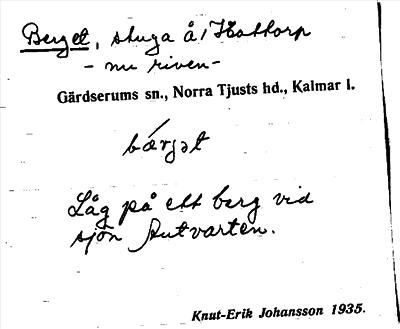 Berget, stuga å Hattorp
- nu riven -
Gärdserums sn., Norra Tjusts hd., Kalmar l.
bærjət
Låg på ett berg vid
sjön Autvarten.
Knut-Erik Johansson 1935.